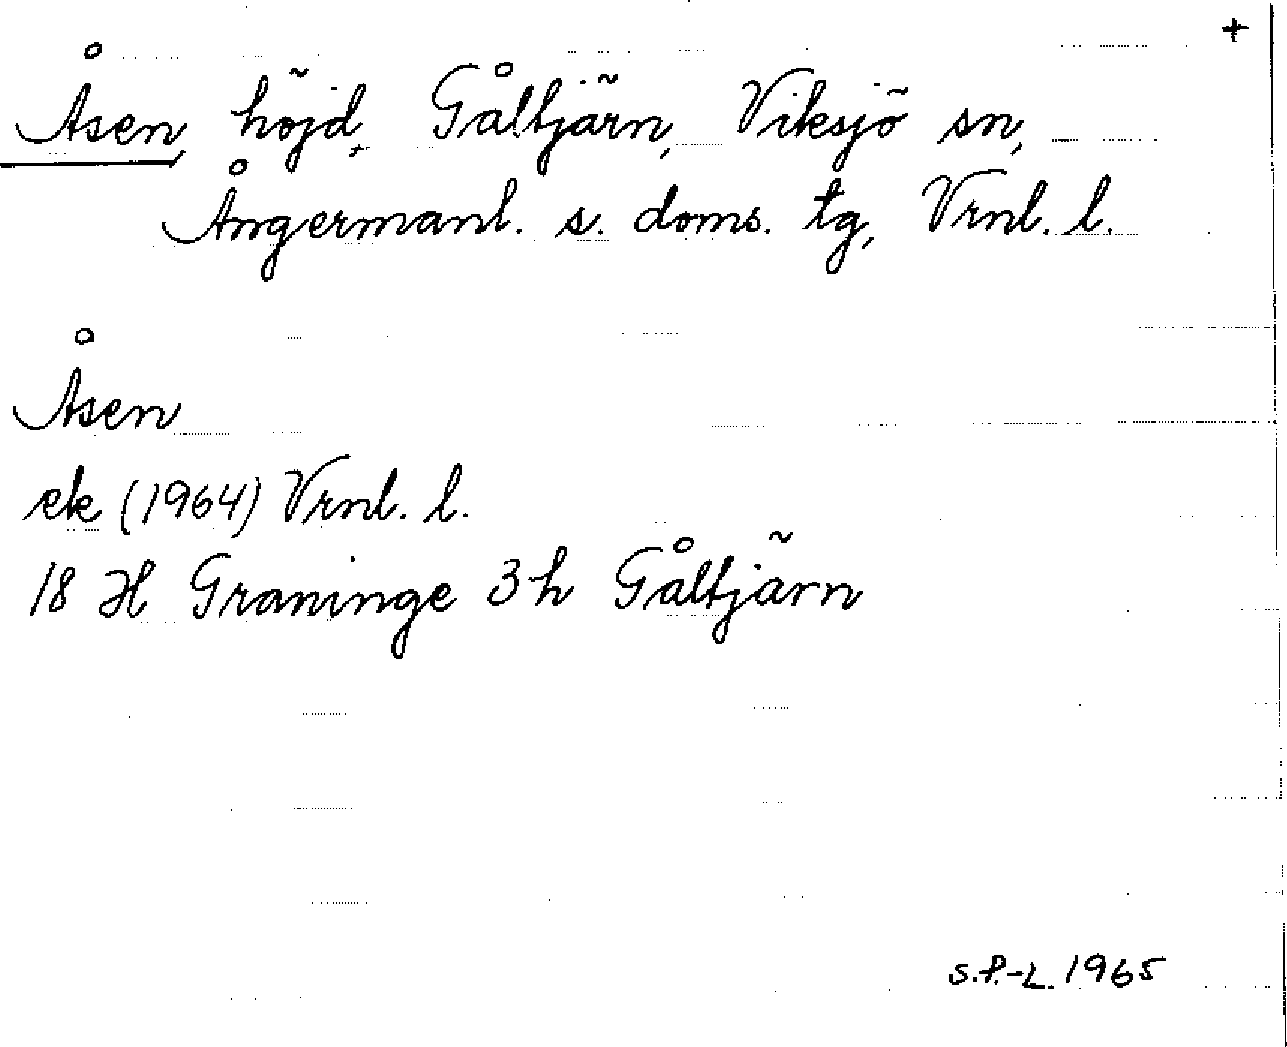 +
Åsen, höjd, Gåltjärn, Viksjö sn,
Ångermanl. s. doms. tg, Vrnl. l.
Åsen
ek (1964) Vrnl. l.
18 H Graninge 3h Gåltjärn
S.P.-L. 1965